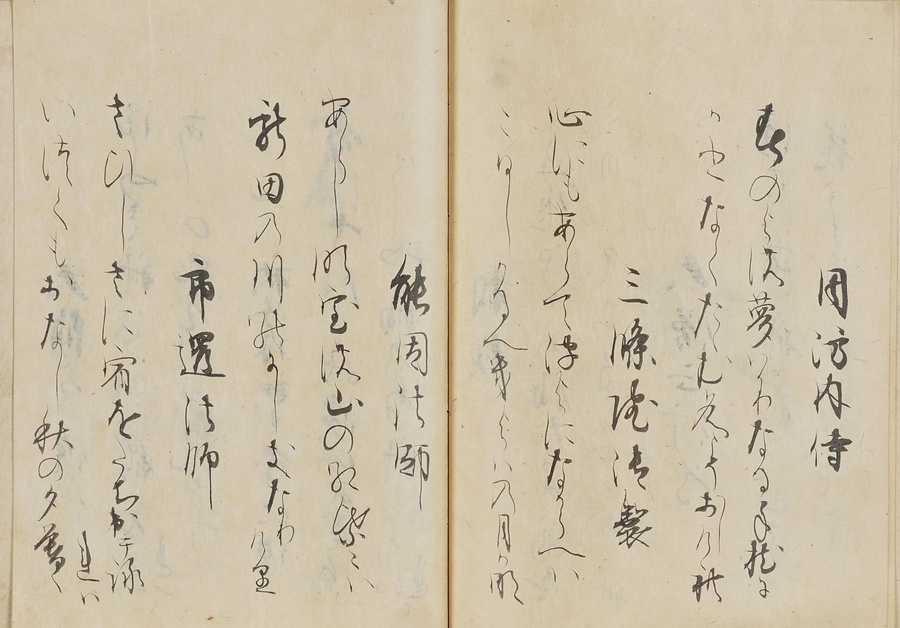 周防内侍
春のよ能夢はかりなる手枕に
かひなくたゝむ名こそおしけれ
三條院御製
心にもあらて浮よになからへは
こひしかるへき夜半の月かな
能因法師
あらし吹室の山のもみち葉は
龍田の川の尓しきなりけり
良暹法師
さひしさに宿をたち出てなかむ
れは
いつくもおなし秋の夕暮